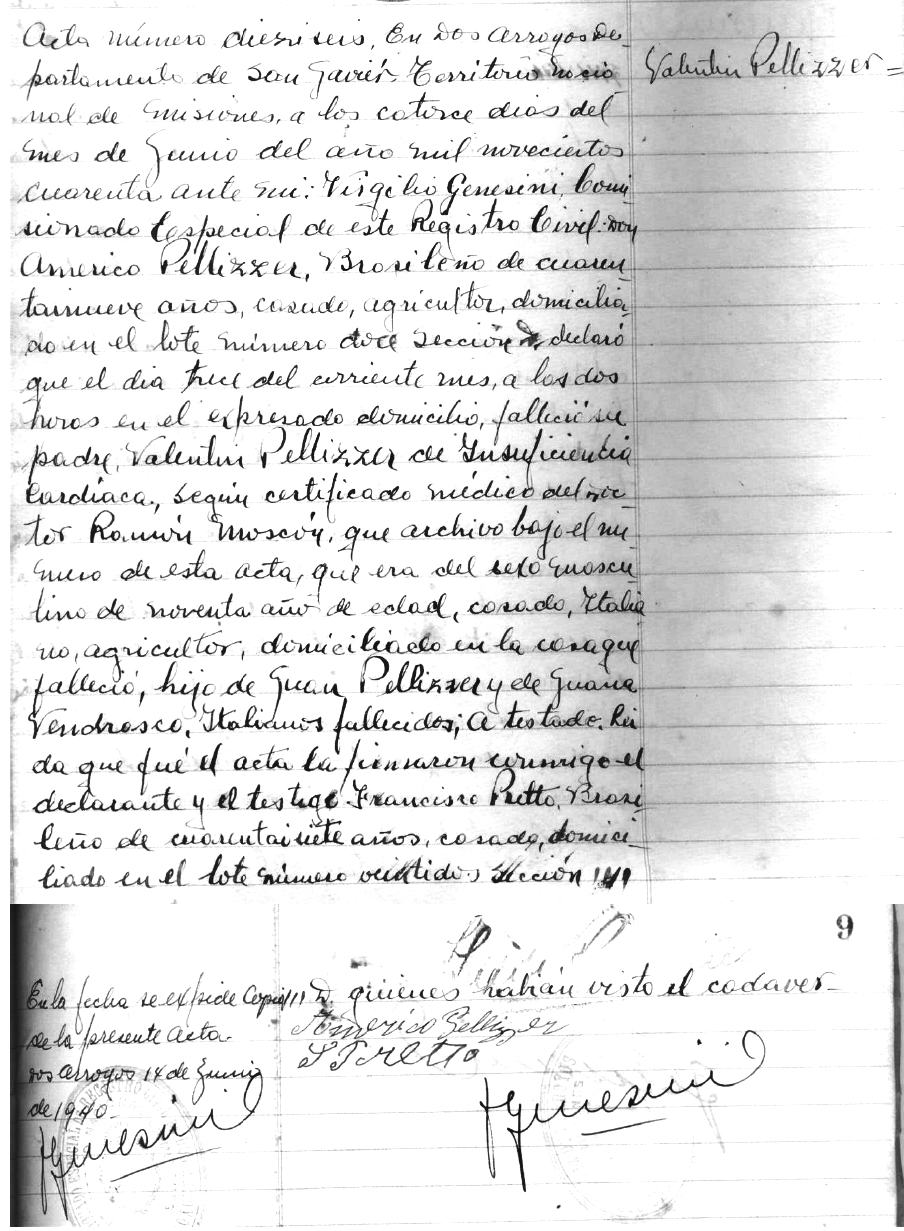 Acta número dieziseis, En Dos Arroyos De-
partamento de San Javier Territorio Nacio
nal de Misiones, a los catorce dias del
mes de Junio del año mil novecientos
cuarenta ante mi: Virgilio Genesini, Comi
sionado Especial de este Registro Civil: Don
Americo Pellizzer, Brasileño de cuaren-
tainueve años, casado, agricultor, domicilia-
do en el lote número doce Sección declaró
que el dia trece del corriente mes, a las dos
horas en el expresado domicilio, falleció su
padre, Valentin Pellizzer de Insuficiencia
Cardiaca., según certificado médico del Doc
tor Ramón Moscón, que archivo bajo el nu-
mero de esta acta, que era del sexo mascu-
lino de noventa año de edad, casado, Italia
no, agricultor, domiciliado en la casa que
falleció, hijo de Guan Pellizzer y de Guana
Vendrasco, Italianos fallecidos; a testado. Lei
da que fué el acta la firmaron conmigo el
declarante y el testigo Francisco Pretto, Brasi-
leño de cuarentaisiete años, casado, domici-
liado en el lote número veintidos Sección
Valentin Pellizzer =
9
D. quienes habián visto el cadaver-
Americo Pellizzer
Pretto
Genesini
En la fecha se expide Copia
de la presente Acta.
Dos Arroyos 14 de Junio
de 1940-
Genesini